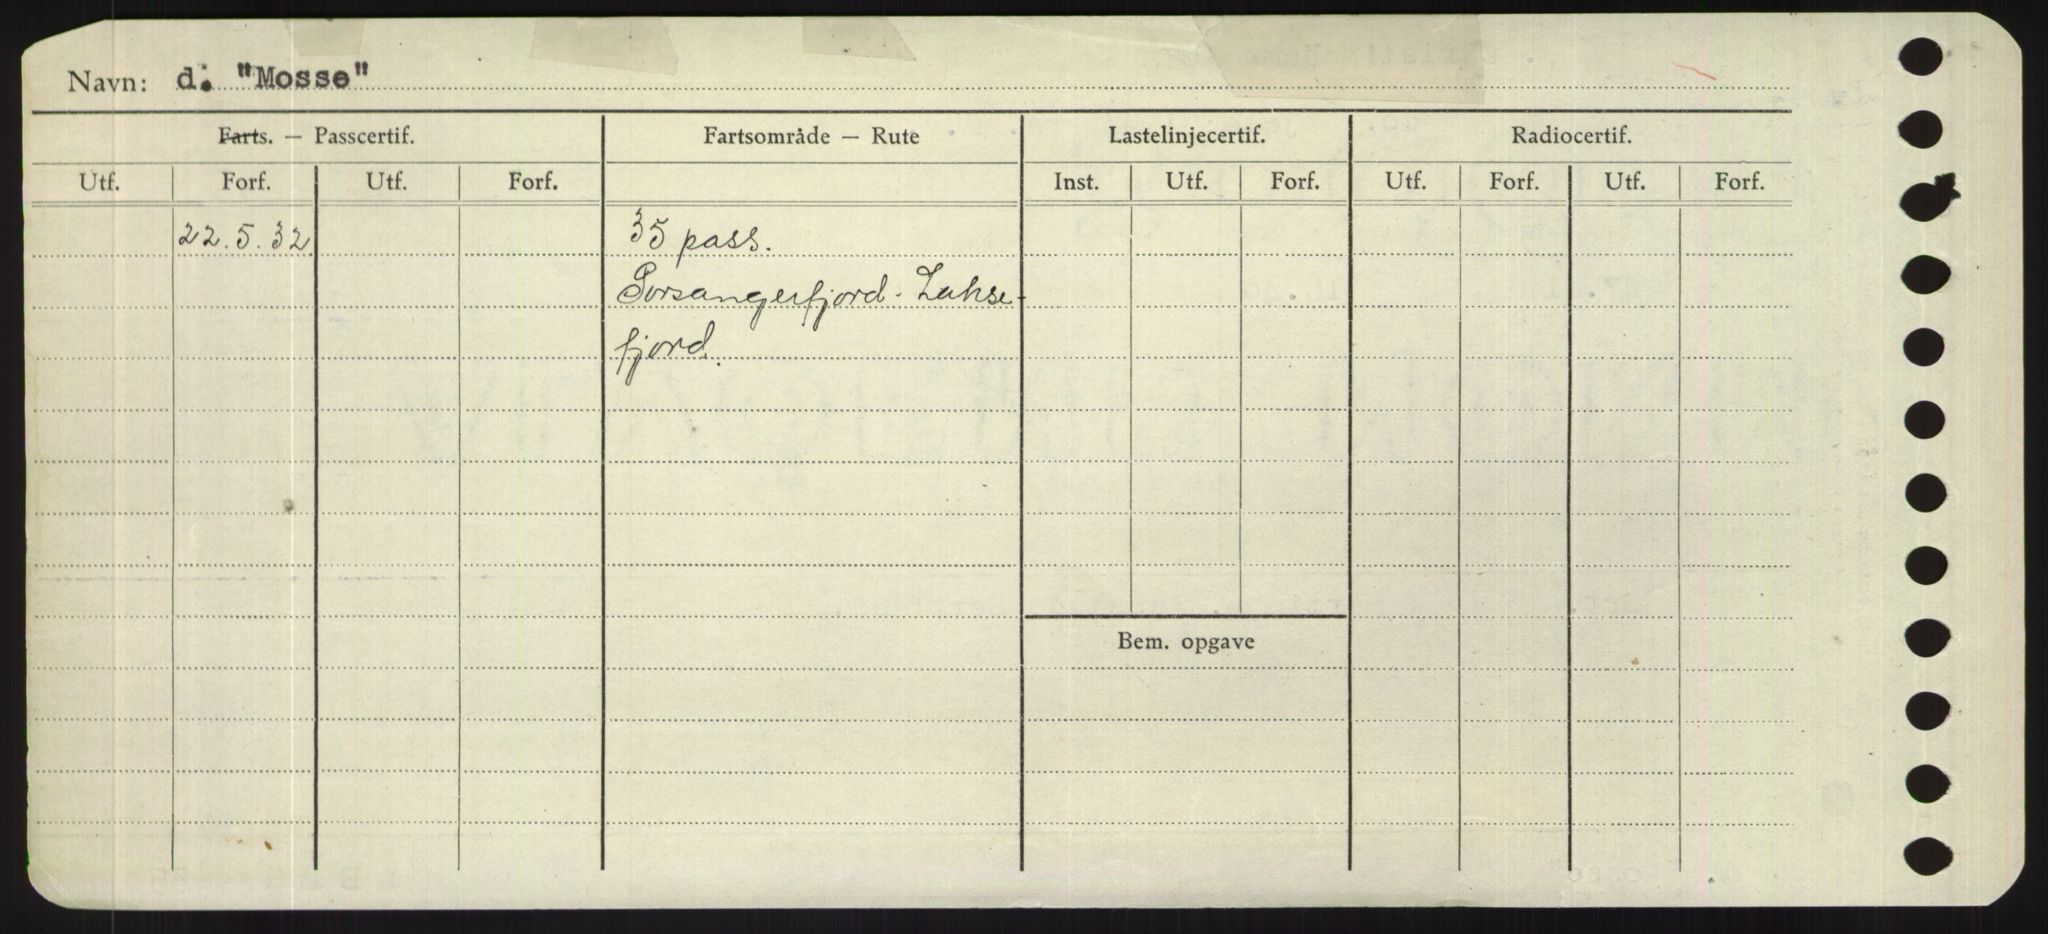 Navn: d. "Mosse"
Farts. — Passcertif. Fartsområde — Rute Lastelinjecertif. Radiocertif.
Utf. Forf. Utf. Forf. Inst. Utf. Forf. Utf. Forf. Utf. Forf.
22.5.32 35 pass.
Porsangerfjord - Lakse-
fjord.
Bem. opgave